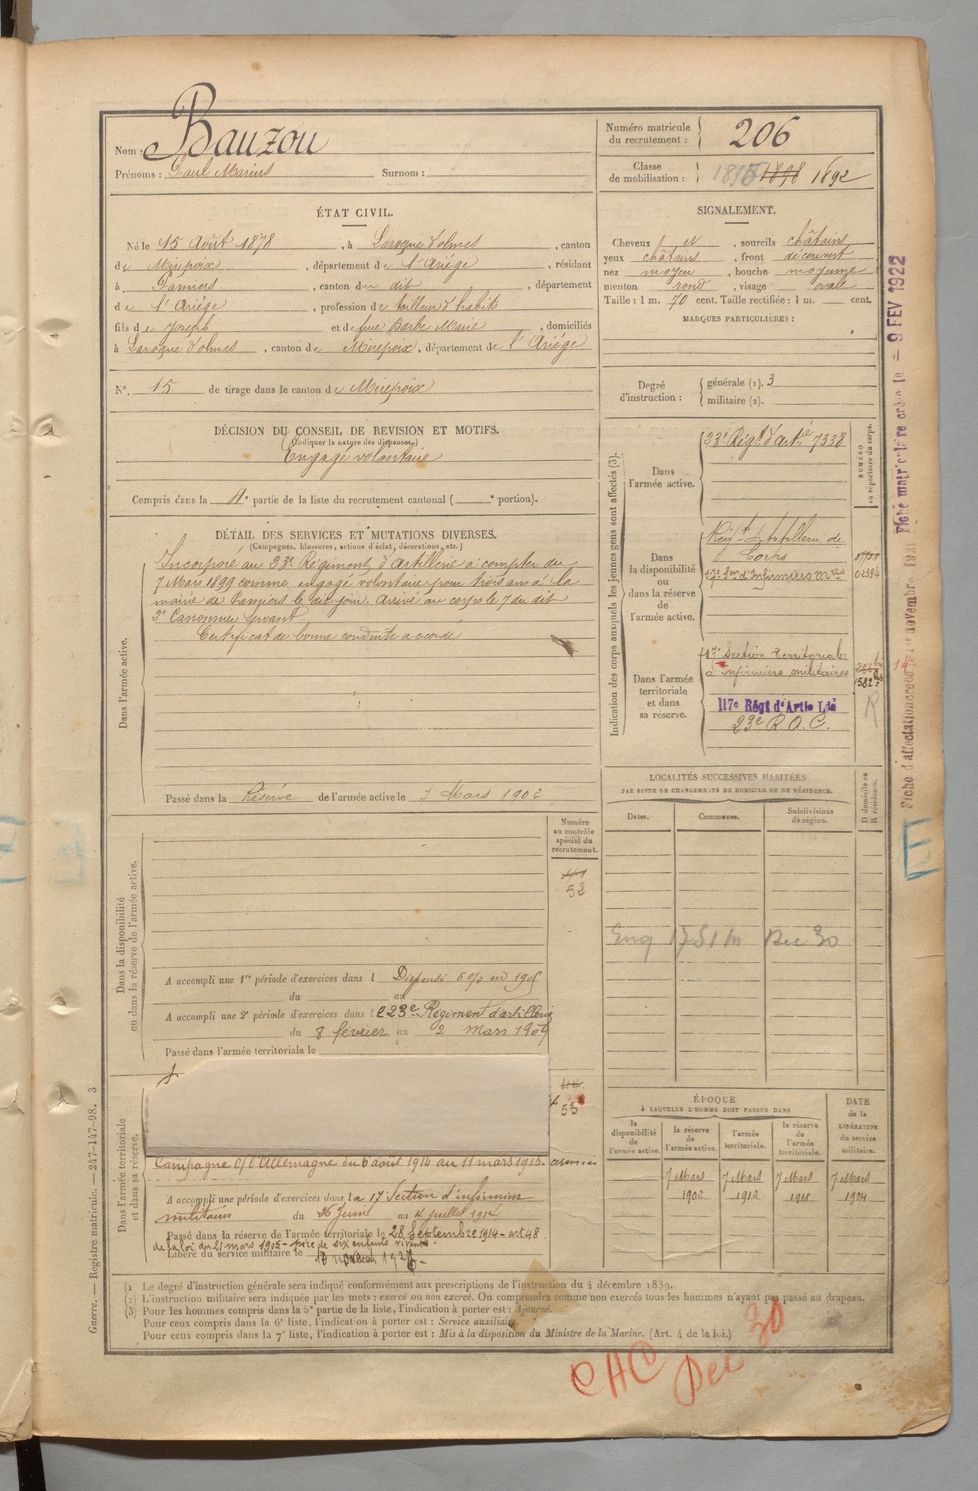 Nom : Bauzou
Prénoms : Paul Marius Surnom :
Numéro matricule du recrutement : 206
Classe de mobilisation : 1895 1898 1892
ÉTAT CIVIL.
Né le 15 Août 1878, à Laroque d'olmes, canton
de Mirepoix, département de l'Ariége, résidant
à Pamiers, canton de dit, département
de l'Ariége, profession de tailleur d'habits
fils de Joseph et de feue Barbe Marie, domiciliés
à Laroque d'olmes, canton de Mirepoix, département de l'Ariége
N°. 15 de tirage dans le canton de Mirepoix
SIGNALEMENT.
Cheveux et, sourcils châtains
yeux châtains, front découvert
nez moyen, bouche moyenne
menton rond, visage ovale
Taille : 1 m. 70 cent. Taille rectifiée : 1 m. cent.
MARQUES PARTICULIÈRES :
Degré d'instruction : générale (1). 3
militaire (2).
DÉCISION DU CONSEIL DE REVISION ET MOTIFS.
(Indiquer la nature des dispenses.)
Engagé volontaire
Compris dans la 4e partie de la liste du recrutement cantonal ( e portion).
DÉTAIL DES SERVICES ET MUTATIONS DIVERSES.
(Campagnes, blessures, actions d'éclat, décorations, etc.)
Dans l'armée active.
Incorporé au 23e Régiment d'Artillerie à compter du
7 Mars 1899 comme engagé volontaire pour trois ans à la
mairie de Pamiers le dit jour. Arrivé au corps le 7 du dit
2e Canonnier servant
Certificat de bonne conduite accordé
Passé dans la Réserve de l'armée active le 7 Mars 1902
Indication des corps auxquels les jeunes gens sont affectés (3).
NUMÉRO au répertoire du corps.
Dans l'armée active.
23e Régt d'artie 7338
Dans la disponibilité ou dans la réserve de l'armée active.
Régt d'Artillerie de
Corps
17e Son d'Infirmiers Mres 02384
Dans l'armée territoriale et dans sa réserve.
17e Section Territoriale
d'Infirmiers militaires
1582
117e Régt d'Artie Lde
23e R.A.C.
R
LOCALITÉS SUCCESSIVES HABITÉES
PAR SUITE DE CHANGEMENTS DE DOMICILE OU DE RÉSIDENCE.
D domicile ou R résidence.
Dates. Communes. Subdivisions de région.
Dec 30
Dans la disponibilité ou dans la réserve de l'armée active.
Numéro au contrôle spécial du recrutement.
52
A accompli une 1re période d'exercices dans l Dispensé 6 0/0 en 1905
du au
A accompli une 2e période d'exercices dans le 23e Régiment d'artillerie
du 8 février au 2 mars 1909
Passé dans l'armée territoriale le
Dans l'armée territoriale et dans sa réserve.
55
Campagne C/ l'Allemagne du 6 août 1914 au 11 mars 1915.
A accompli une période d'exercices dans la 17 Section d'infirmiers
militaires du 26 Juin au 4 juillet 1912
Passé dans la réserve de l'armée territoriale le 28 Septembre 1914 - art 48
de la loi du 21 mars 1905 - père de six enfants vivants.
Libéré du service militaire le
ÉPOQUE
À LAQUELLE L'HOMME DOIT PASSER DANS
DATE de la LIBÉRATION du service militaire.
la disponibilité de l'armée active. la réserve de l'armée active. l'armée territoriale. la réserve de l'armée territoriale.
7 Mars 1902 7 Mars 1912 7 Mars 1918 7 Mars 1924
(1) Le degré d'instruction générale sera indiqué conformément aux prescriptions de l'instruction du 4 décembre 1889.
(2) L'instruction militaire sera indiquée par les mots : exercé ou non exercé. On comprendra comme non exercés tous les hommes n'ayant pas passé au drapeau.
(3) Pour les hommes compris dans la 5e partie de la liste, l'indication à porter est : Ajourné.
Pour ceux compris dans la 6e liste, l'indication à porter est : Service auxiliaire.
Pour ceux compris dans la 7e liste, l'indication à porter est : Mis à la disposition du Ministre de la Marine. (Art. 4 de la loi.)
CAC Dec 30
Guerre. — Registre matricule. — 247-147-98. 3
Fiche matriculaire créée le - 9 FEV 1922
Fiche d'affectation créée le novembre 1921